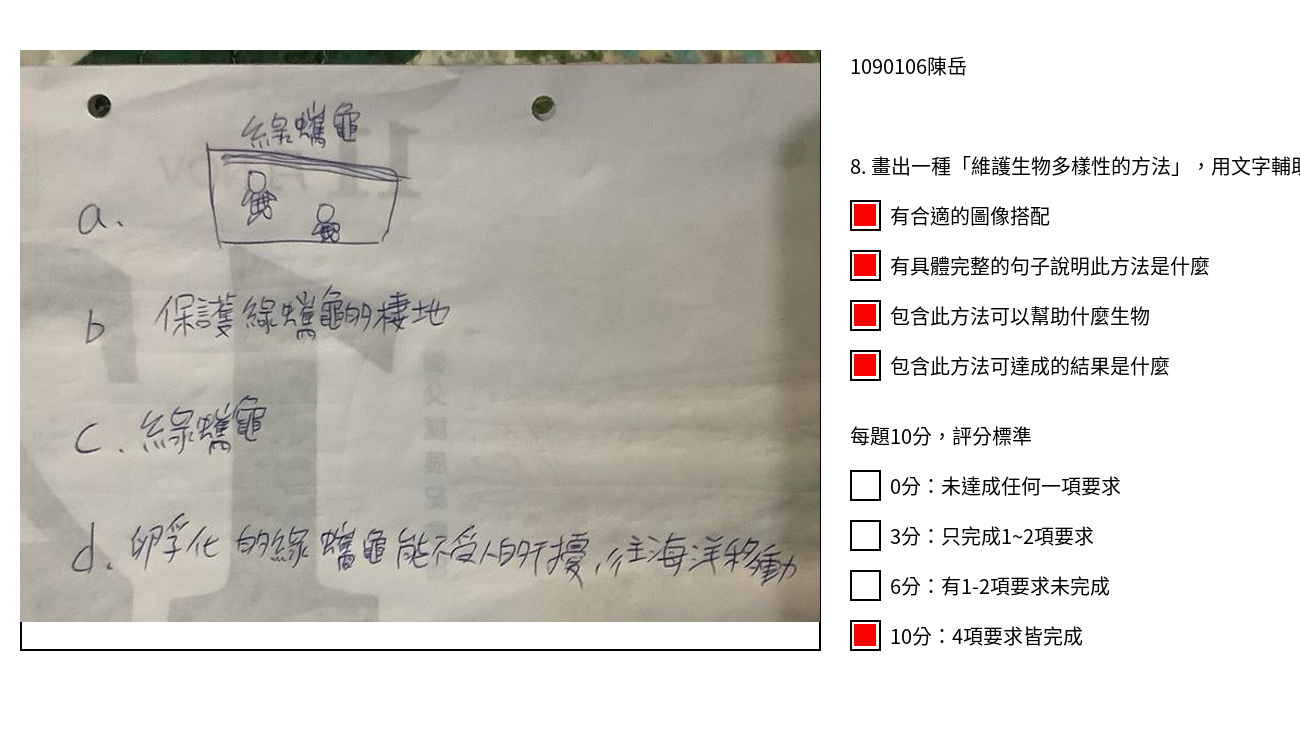 綠蠵龜
a.
b 保護綠蠵龜的棲地
c. 綠蠵龜
d. 卵孚化的綠蠵龜能不受人的干擾,往海洋移動
1090106陳岳
8. 畫出一種「維護生物多樣性的方法」，用文字輔助
有合適的圖像搭配
有具體完整的句子說明此方法是什麼
包含此方法可以幫助什麼生物
包含此方法可達成的結果是什麼
每題10分，評分標準
0分：未達成任何一項要求
3分：只完成1~2項要求
6分：有1-2項要求未完成
10分：4項要求皆完成